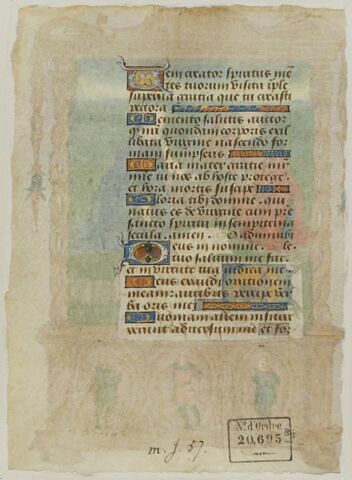 Veni creator spiritus mē
tes tuorum visita iple
superna gratia que tu creasti
pectora
Memento salutis auctor
q nr̄i quondam corporis ex il
libata virgine nascendo for
mam sumpseris
Maria mater gratie mr̄
mie tu nos ab hoste protege
et hora mortis suscipe
Gloria tibi domine qui
natus es de virgine cum pre
sancto spiritu in sempiterna
secula. amen.
Deus in nomine
tuo saluum me fac
et in virtute tua iudica me.
Deus exaudi orationem
meam auribus percipe ver
ba oris mei
Quoniam alieni insurre
xerunt aduersum me et for
N.º d'Ordre
20,695
m. J. 57.